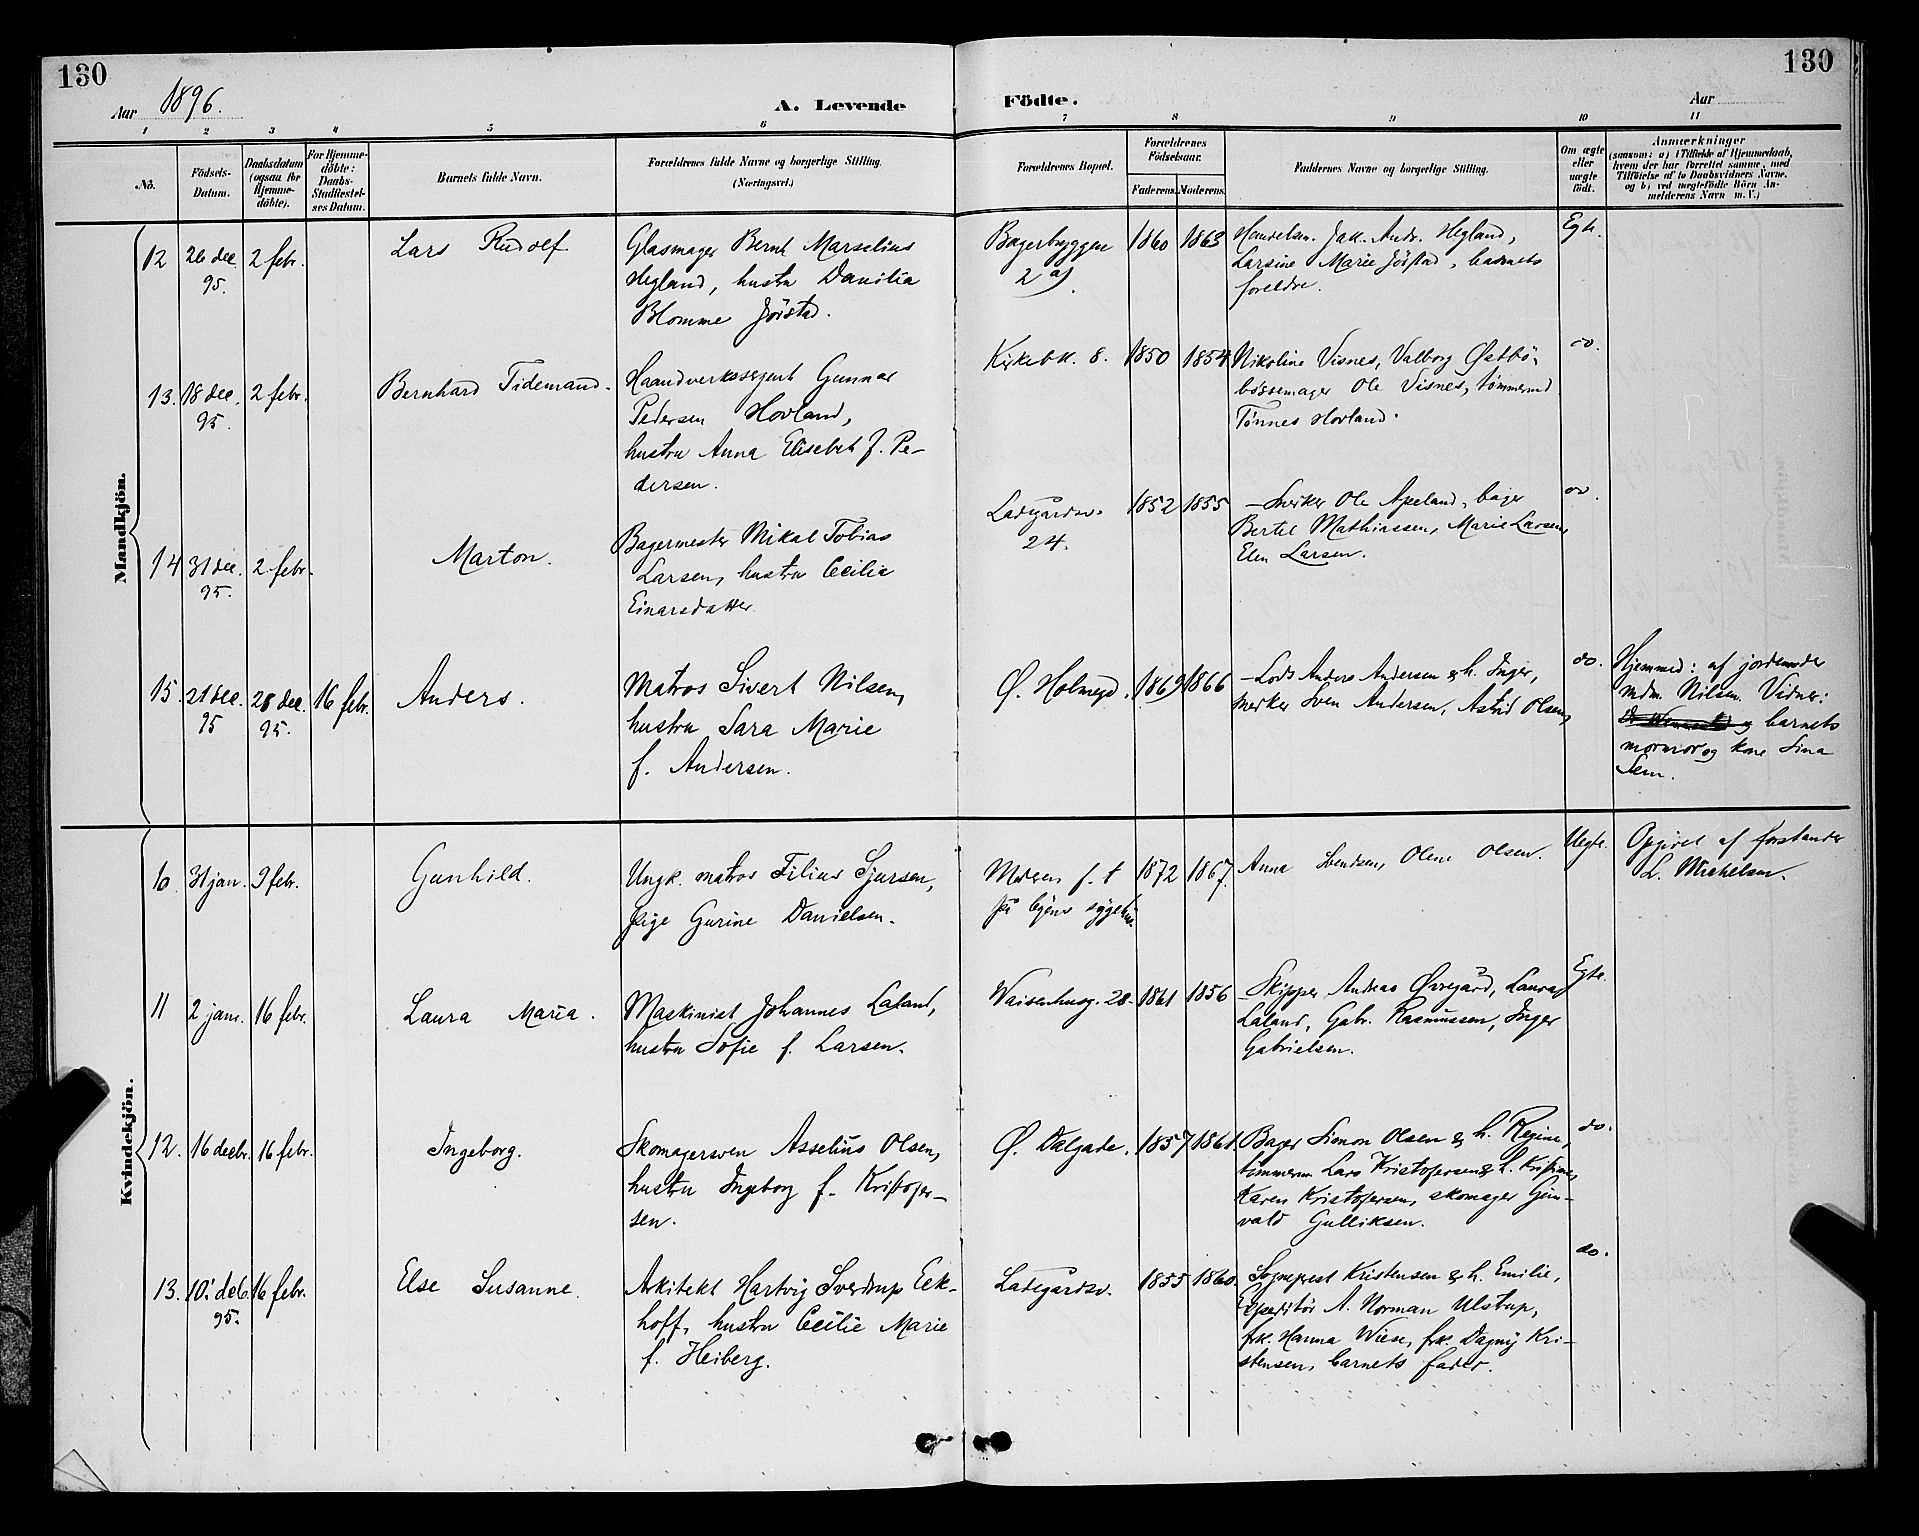 130
130
Aar 1896.
A. Levende
Födte.
Aar
1 2 3 4 5 6 7 8 9 10 11
No.
Födsels-
Datum.
Daabsdatum
(ogsaa for
Hjemme-
döbte).
For Hjemme-
döbte:
Daabs-
Stadfæstel-
ses Datum.
Barnets fulde Navn.
Forældrenes fulde Navne og borgerlige Stilling.
(Næringsvei.)
Forældrenes Bopæl.
Forældrenes
Födselsaar.
Faderens. Moderens.
Faddernes Navne og borgerlige Stilling.
Om ægte
eller
uægte
födt.
Anmærkninger
(saasom: a) i Tilfælde af Hjemmedaab,
hvem der har forrettet samme, med
Tilföielse af to Daabsvidners Navne,
og b) ved uegtefödte Börn An-
melderens Navn m. V.)
Mandkjön.
12
26 dec.
95.
2 febr.
Lars Rudolf
Glasmager Bernt Marselius
Hegland, hustru Danilia
Blomme Jörstad.
Bagerbryggen
2 a).
1860
1863
Handelsm. Jak. Andr. Hegland,
Larsine Marie Jörstad, barnets
foreldre.
Egte.
13.
18 dec.
95.
2 febr.
Bernhard Tidemand.
Haandverksagent Gunnar
Pedersen Hovland,
hustru Anna Elisebet f. Pe-
dersen.
Kirkebk. 8.
1850
1854
Nikoline Visnes, Valborg Østbö,
bössemager Ole Visnes, tømmermd
Tønnes Hovland.
do.
14
31 dec.
95.
2 febr.
Marton.
Bagermester Mikal Tobias
Larsen, hustru Cecilie
Einarsdatter
Ladegårdsv.
24.
1852
1855
Snekker Ole Apeland, bager
Bertel Mathiassen, Marie Larsen,
Elen Larsen.
do.
15.
21 dec.
95
28 dec.
95.
16 febr.
Anders.
Matros Sivert Nilsen,
hustru Sara Marie
f. Andersen.
Ø. Holmegd.
1869
1866
Lods Anders Andersen & h. Inger,
snekker Sven Andersen, Astrid Olsen,
do.
Hjemmed: af jordemoder
mdm. Nilsen. Vidner:
barnets
mormor og kone Sina
Sem.
Kvindekjön.
10.
31 jan.
9 febr.
Gunhild.
Ungk. matros Filius Sjursen,
pige Gurine Danielsen.
Moderen f. t.
på byens sygehus.
1872
1867.
Anna Svendsen, Olene Olsen.
Uegte.
Opgivet af forstander
L. Michelsen.
11
2 jan.
16 febr.
Laura Maria.
Maskinist Johannes Laland,
hustru Sofie f. Larsen.
Waisenhusg. 28.
1861
1856
Skipper Andreas Øvregård, Laura
Laland, Gabr. Rasmussen, Inger
Gabrielsen.
Egte.
12.
16 decbr.
16 febr.
Ingeborg.
Skomagersven Asselius Olsen,
hustru Ingeborg f. Kristofer-
sen.
Ø. Dalgade.
1857
1861.
Bager Simon Olsen & h. Regine,
tømmerm. Lars Kristofersen & h. Kristine,
Karen Kristofersen, skomager Gun-
vald Gulliksen.
do.
13.
10. dcb.
95.
16 febr.
Else Susanne.
Arkitekt Hartvig Sverdrup Eck-
hoff, hustru Cecilie Marie
f. Heiberg.
Ladegårdsv.
1855
1860.
Sogneprest Kristensen & h. Emilie,
Expeditör A. Norman Ulstrup,
frk. Hanna Wiese, frk. Dagny Kri-
stensen, barnets fader.
do.